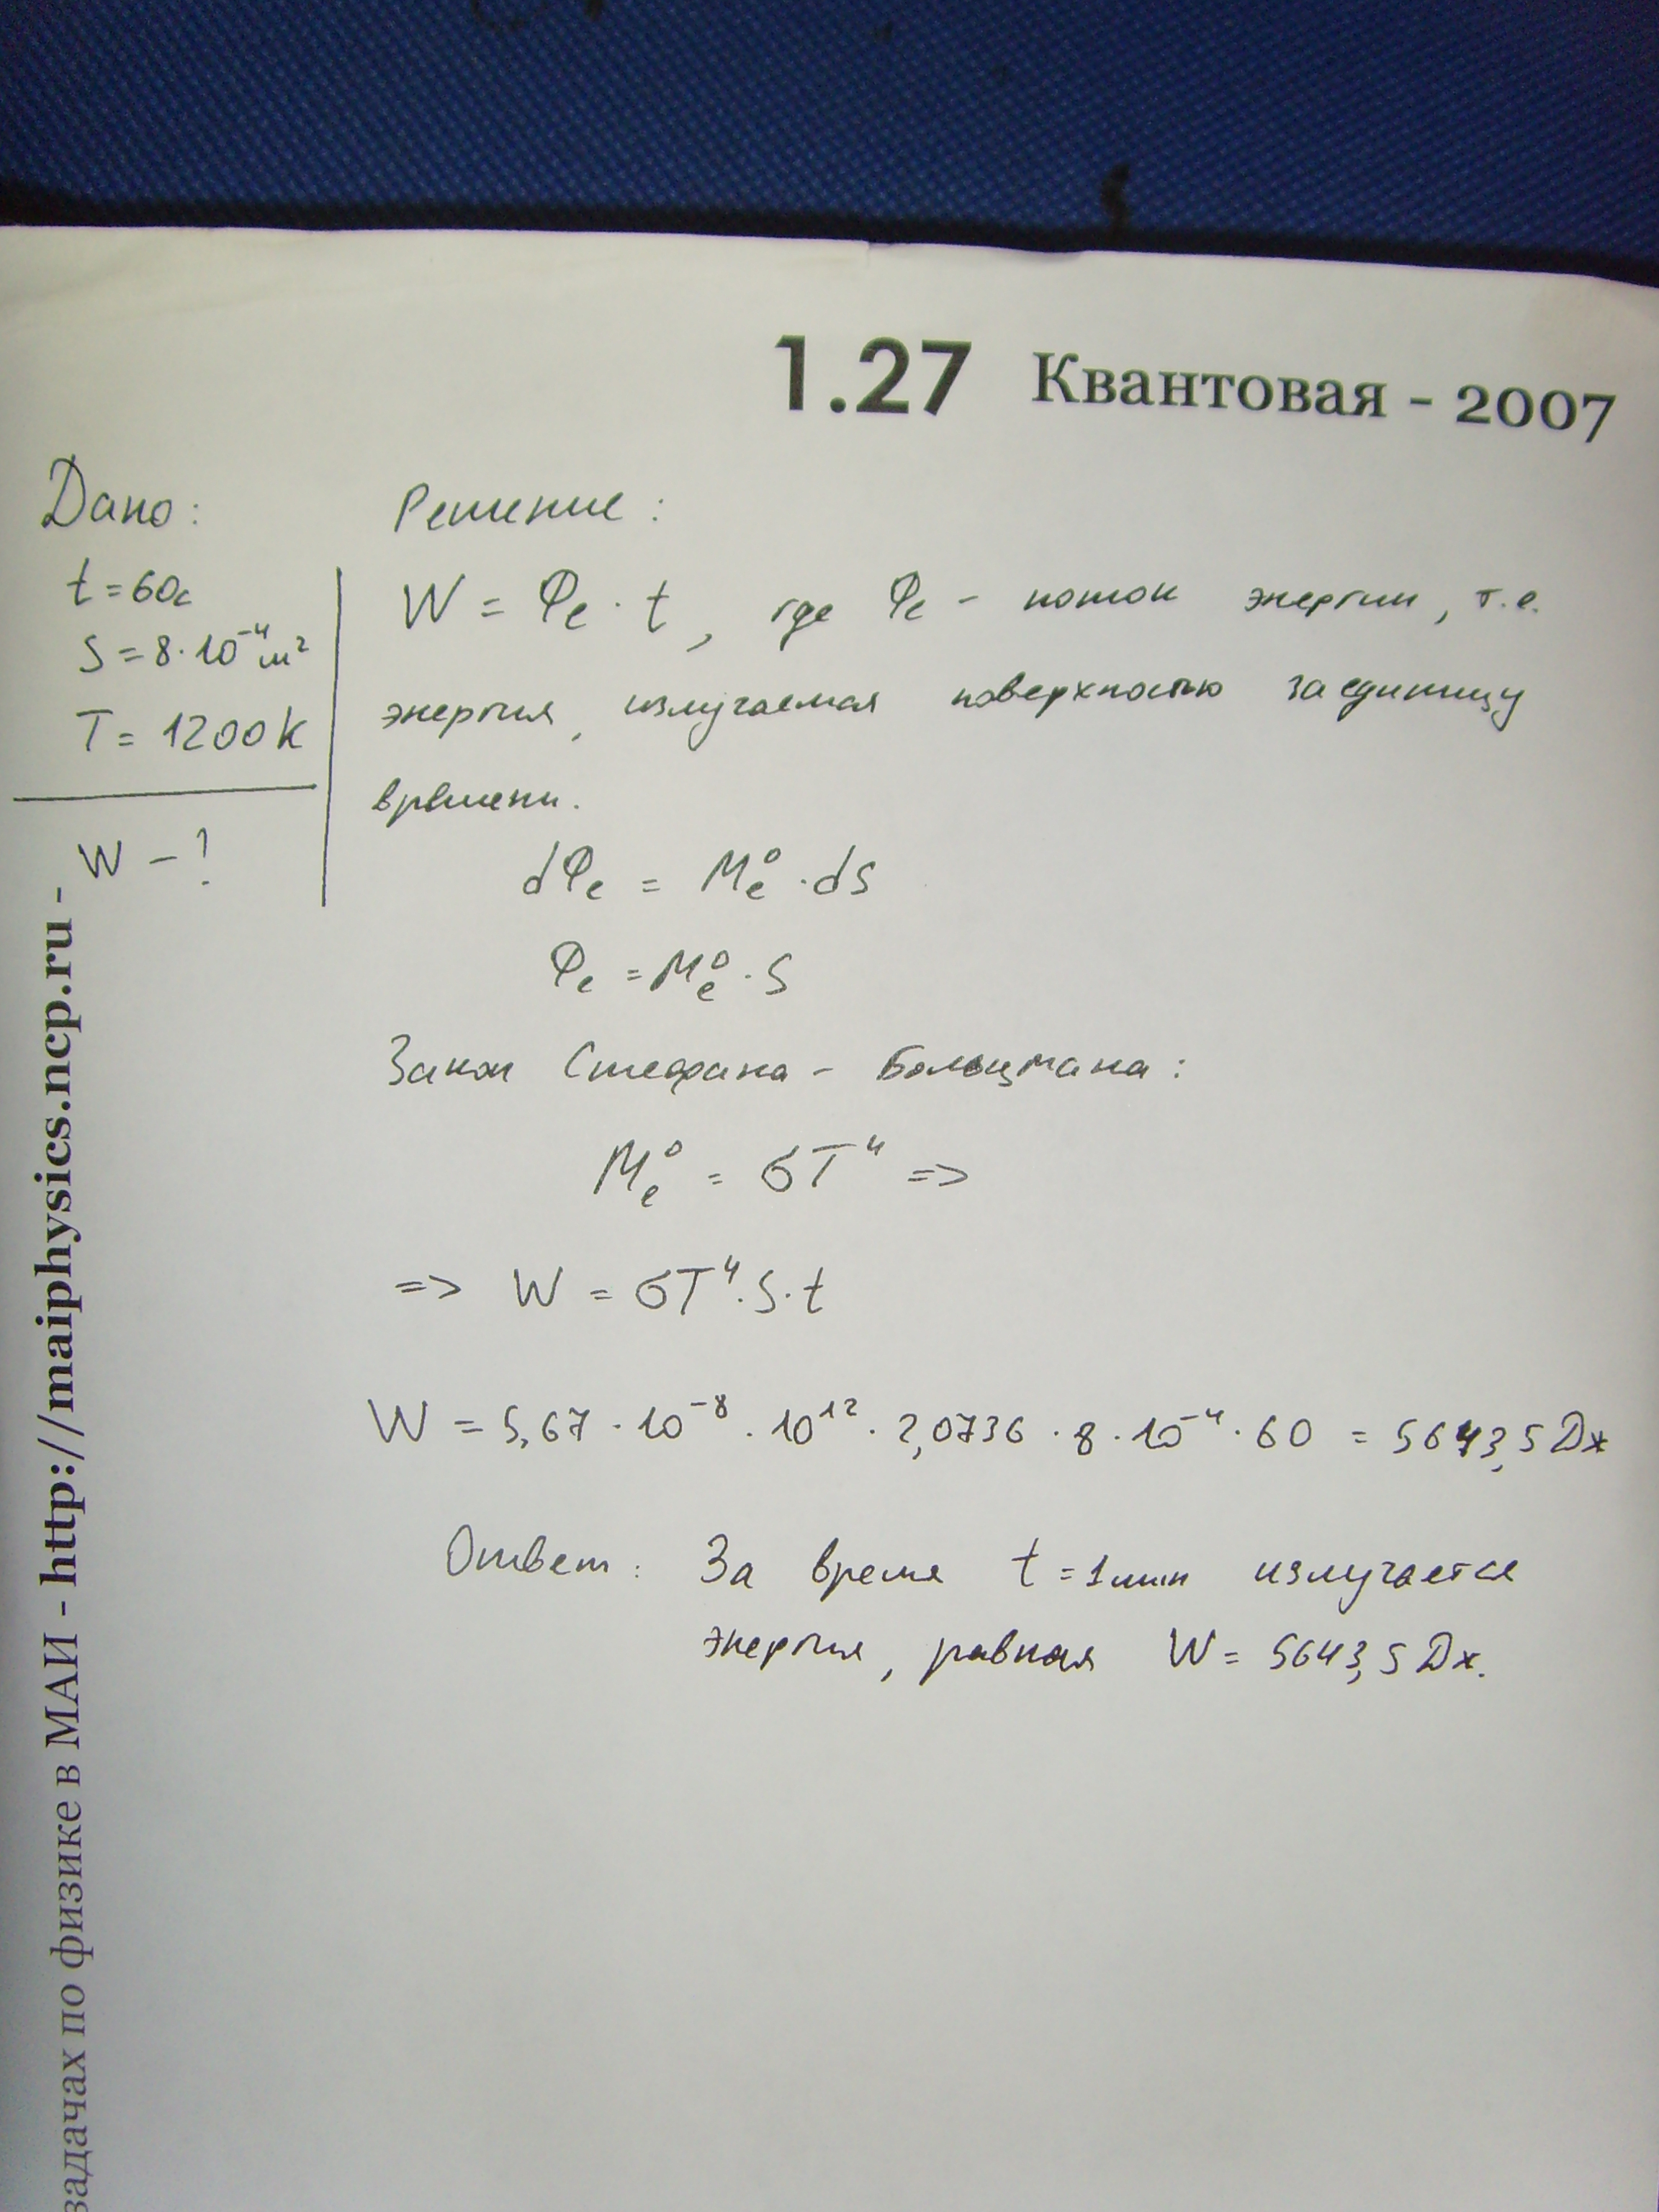 1.27 Квантовая - 2007
Дано:
t = 60с
S = 8·10⁻⁴ м²
T = 1200 K
W - ?
Решение:
W = Φₑ · t, где Φₑ - поток энергии, т.е.
энергия, излучаемая поверхностью за единицу
времени.
dΦₑ = Mₑ⁰ · dS
Φₑ = Mₑ⁰ · S
Закон Стефана - Больцмана:
Mₑ⁰ = σT⁴ =>
=> W = σT⁴·S·t
W = 5,67 · 10⁻⁸ · 10¹² · 2,0736 · 8 · 10⁻⁴ · 60 = 5643,5 Дж
Ответ: За время t = 1 мин излучается
энергия, равная W = 5643,5 Дж.
задачах по физике в МАИ - http://maiphysics.ncp.ru -